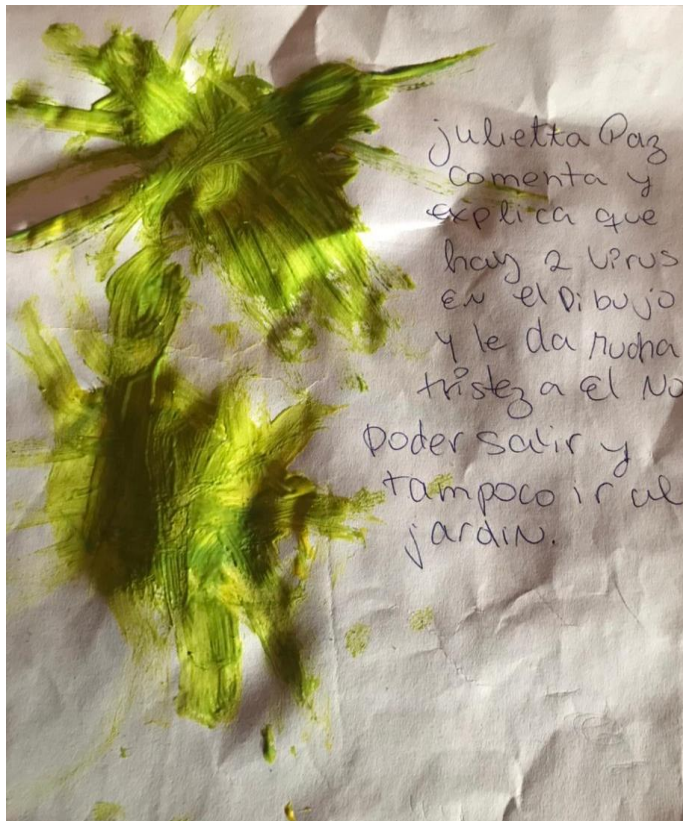 julietta Paz
comenta y
explica que
hay 2 virus
EN el Dibujo
y le da mucha
tristeza el NO
poder salir y
tampoco ir al
jardin.